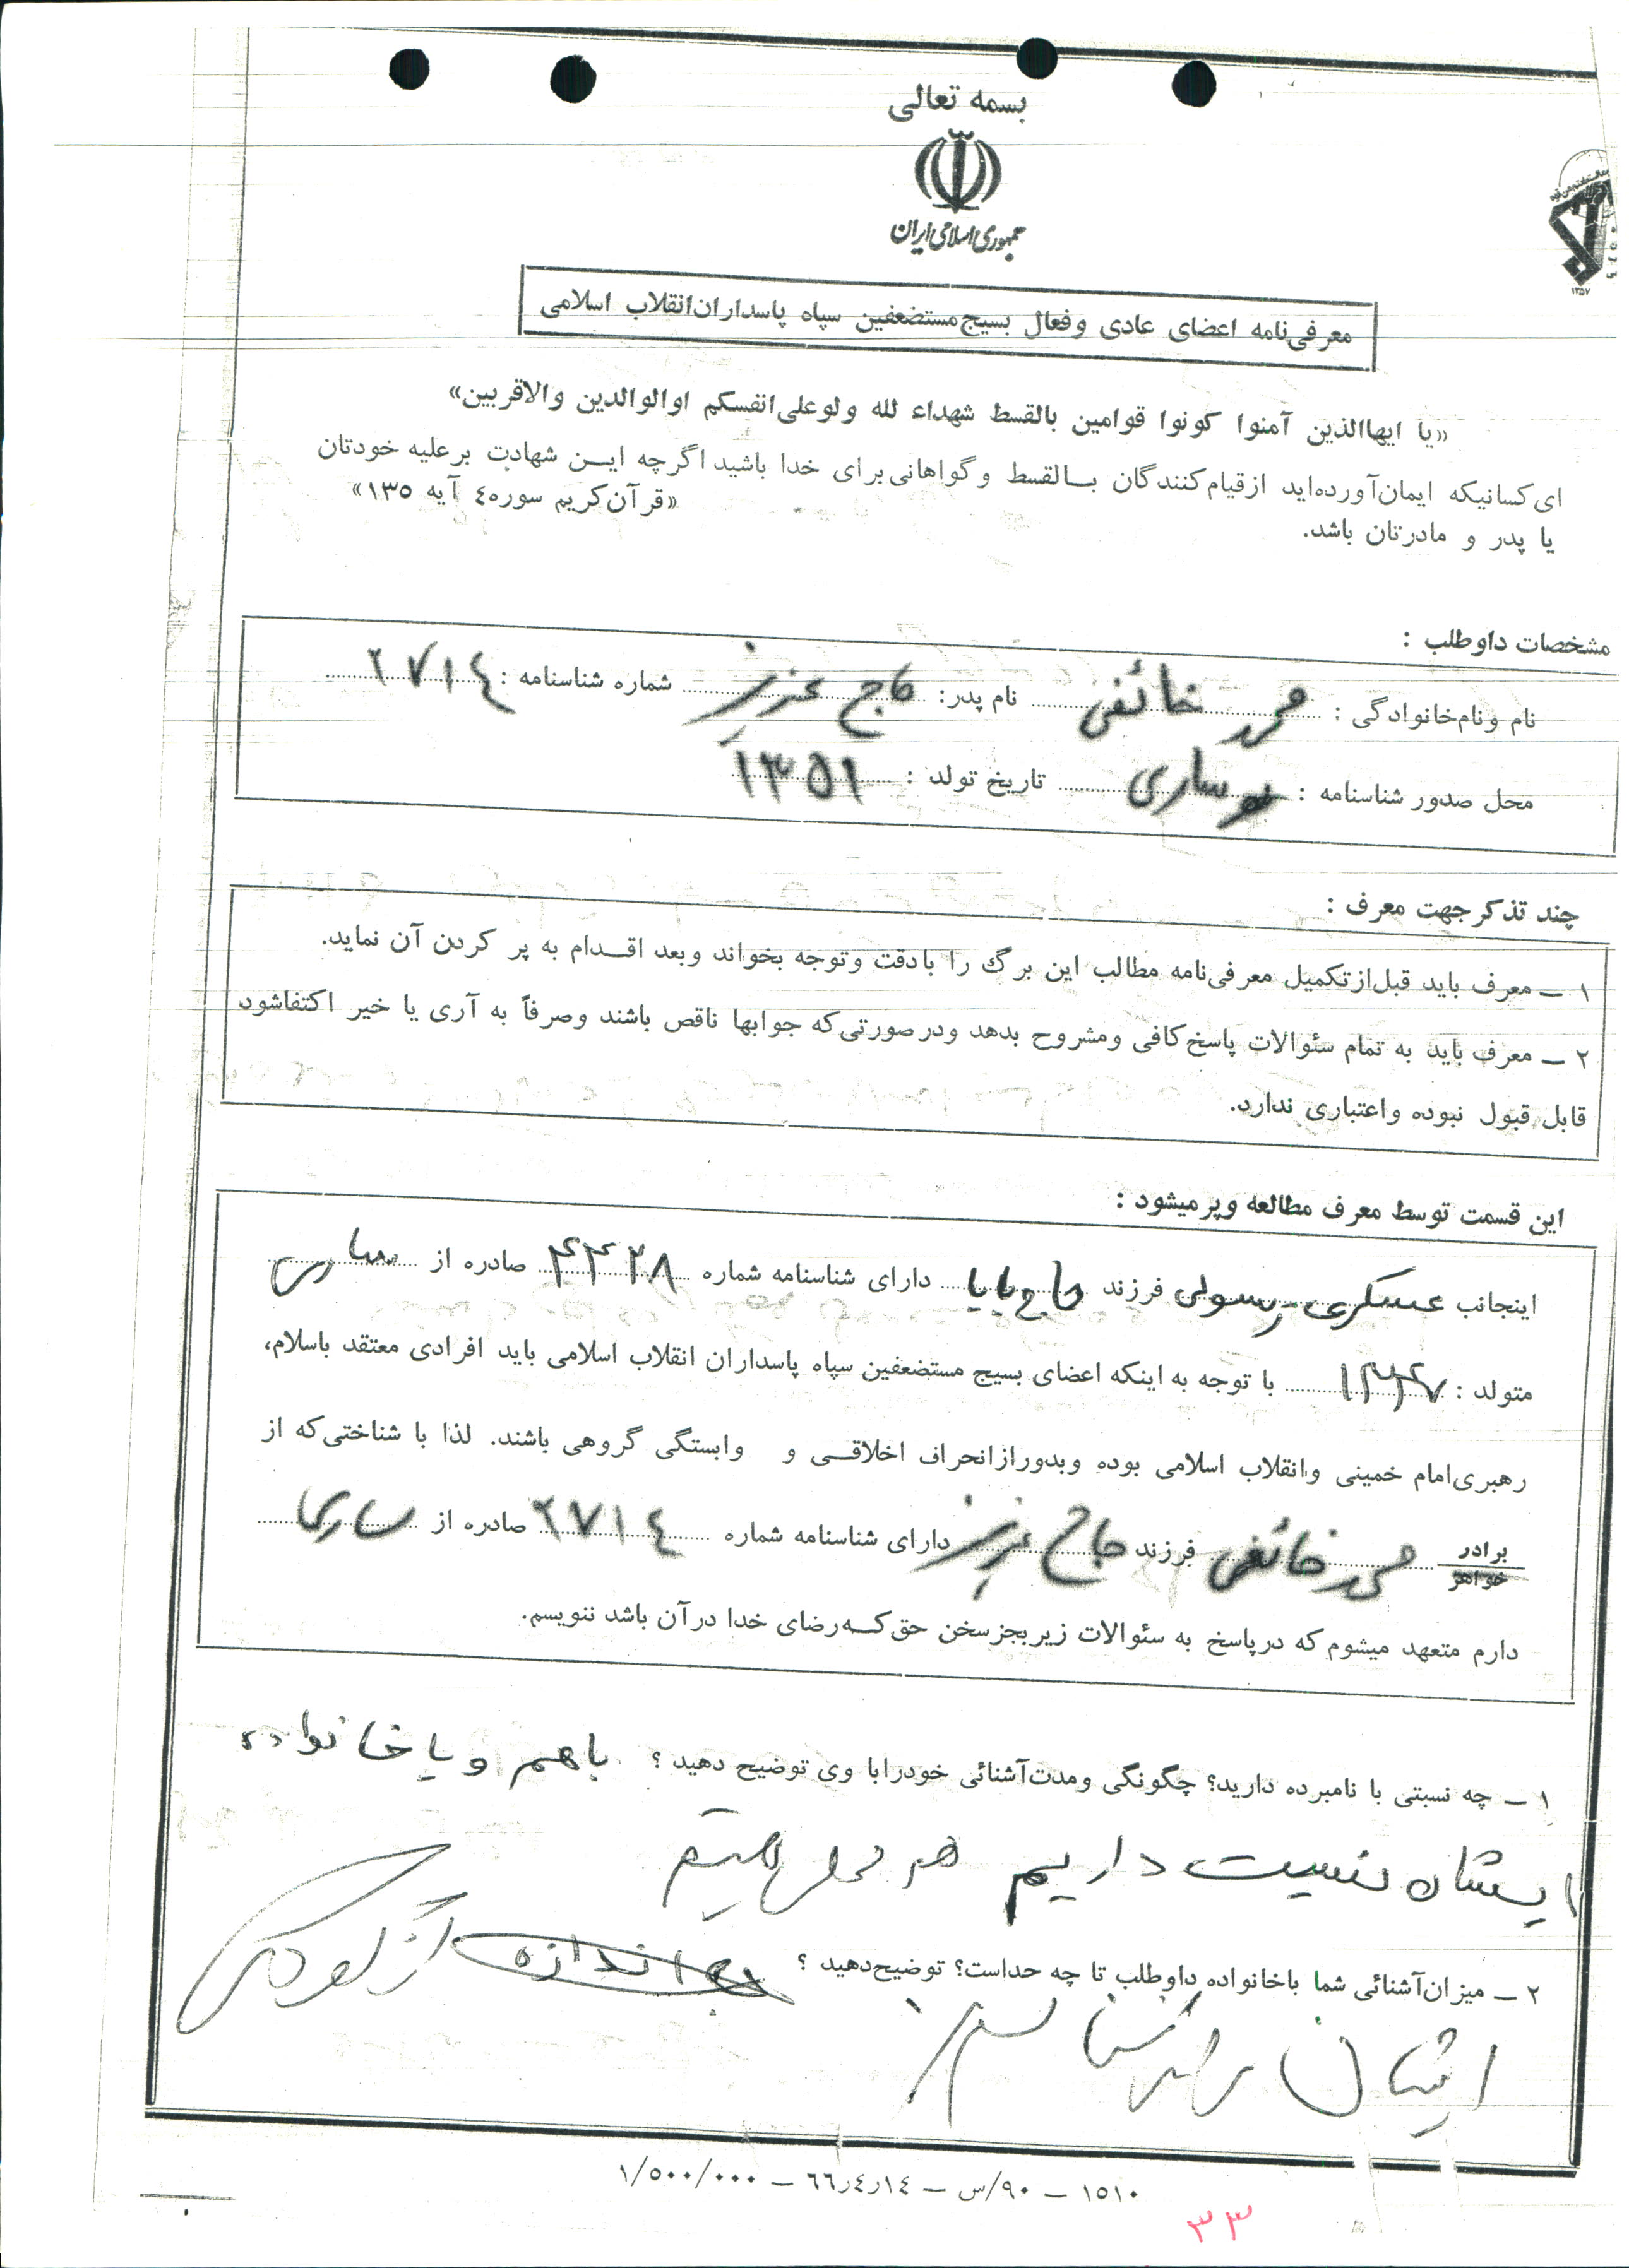 بسمه تعالی
جمهوری اسلامی ایران
۱۳۵۷
معرفی‌نامه اعضای عادی و فعال بسیج مستضعفین سپاه پاسداران انقلاب اسلامی
«یا ایهاالذین آمنوا کونوا قوامین بالقسط شهداء لله ولوعلی‌انفسکم اوالوالدین والاقربین»
ای کسانیکه ایمان‌آورده‌اید ازقیام‌کنندگان بالقسط و گواهانی برای خدا باشید اگرچه این شهادت برعلیه خودتان
یا پدر و مادرتان باشد. «قرآن کریم سوره٤ آیه ۱۳۵»
مشخصات داوطلب :
نام ونام‌خانوادگی : محمد خائفی نام پدر: حاج عزیز شماره شناسنامه : ۲۷۱٤
محل صدور شناسنامه : ساری تاریخ تولد : ۱۳۵۱
چند تذکرجهت معرف :
۱ – معرف باید قبل‌ازتکمیل معرفی‌نامه مطالب این برگ را بادقت وتوجه بخواند وبعد اقدام به پر کردن آن نماید.
۲ – معرف باید به تمام سئوالات پاسخ‌کافی ومشروح بدهد ودرصورتی‌که جوابها ناقص باشند وصرفاً به آری یا خیر اکتفاشود
قابل قبول نبوده واعتباری ندارد.
این قسمت توسط معرف مطالعه وپرمیشود :
اینجانب عسکری رسولی فرزند حاج بابا دارای شناسنامه شماره ۴۴۲۸ صادره از ساری
متولد : ۱۳۴۷ با توجه به اینکه اعضای بسیج مستضعفین سپاه پاسداران انقلاب اسلامی باید افرادی معتقد باسلام،
رهبری‌امام خمینی وانقلاب اسلامی بوده وبدورازانحراف اخلاقی و وابستگی گروهی باشند. لذا با شناختی‌که از
برادر
خواهر محمد خائفی فرزند حاج عزیز دارای شناسنامه شماره ۲۷۱٤ صادره از ساری
دارم متعهد میشوم که درپاسخ به سئوالات زیربجزسخن حق‌که‌رضای خدا درآن باشد ننویسم.
۱ – چه نسبتی با نامبرده دارید؟ چگونگی ومدت‌آشنائی خودرابا وی توضیح دهید ؟ باهم و با خانواده
ایشان نسبت داریم هم محل هستیم
۲ – میزان‌آشنائی شما باخانواده داوطلب تا چه حداست؟ توضیح‌دهید ؟ به اندازه از کودکی
ایشان را می‌شناسم
۱۵۱۰ – ۹۰/س – ۱٤ر٤ر٦٦ – ۱/۵۰۰/۰۰۰
۳۳